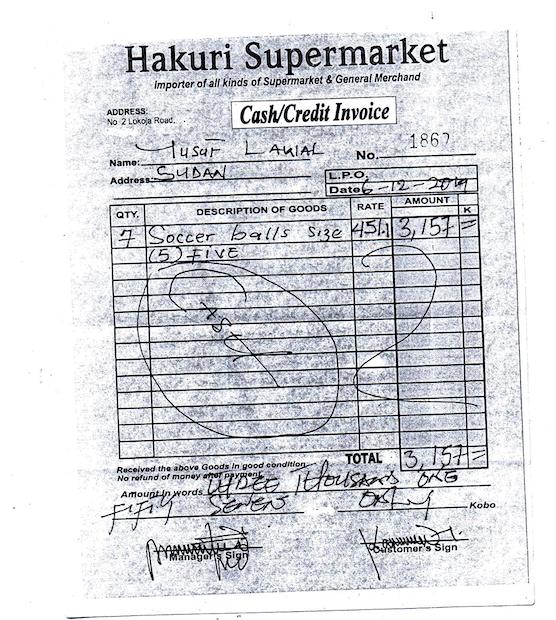 Hakuri Supermarket
Importer of all kinds of Supermarket & General Merchand
ADDRESS:
No 2 Lokoja Road.
Cash/Credit Invoice
Name: Yusuf
No. 1867
Address: SUDAN
L.P.O.
Date 6-12-2019
QTY. DESCRIPTION OF GOODS RATE AMOUNT K
7 Soccer balls size 451 3,157 =
(5) FIVE
TOTAL 3,157 =
Received the above Goods in good condition
No refund of money after payment
Amount in words THREE THOUSAND ONE
FIFTY SEVEN ONLY Kobo
Manager's Sign Customer's Sign